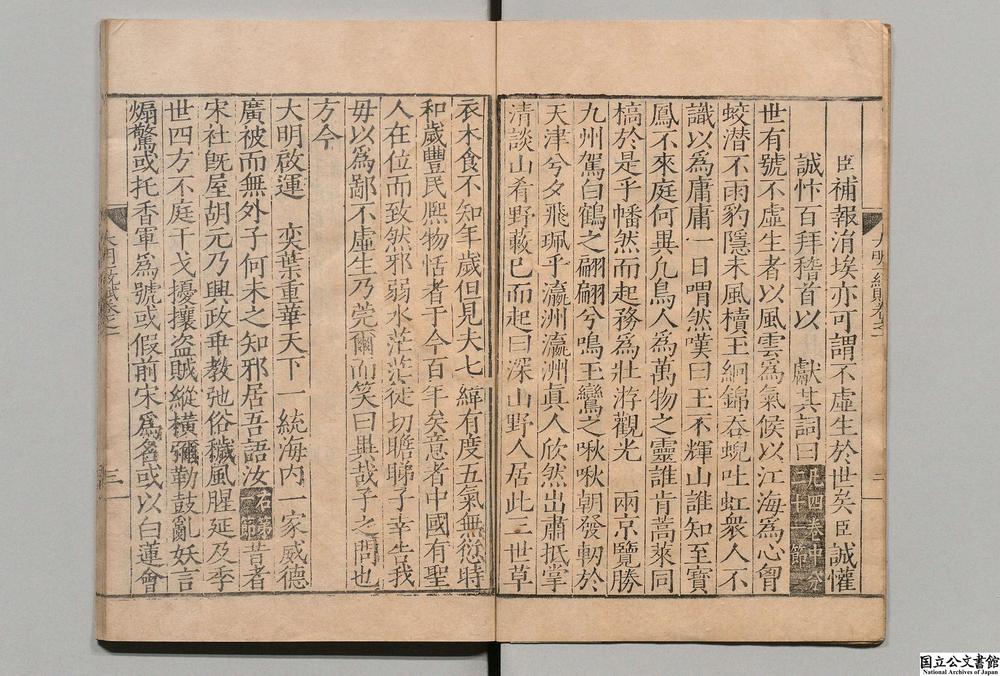 臣補報涓埃亦可謂不虛生於世矣臣誠懽
誠忭百拜稽首以　獻其詞曰凡四卷中分二十一節
世有號不虛生者以風雲爲氣候以江海爲心胷
蛟潜不雨豹隱未風櫝玉絅錦吞蜺吐虹衆人不
識以爲庸庸一日喟然嘆曰玉不輝山誰知至寳
鳳不來庭何異凡鳥人爲萬物之靈誰肯蒿萊同
槁於是乎幡然而起務爲壯游觀光　兩京覽勝
九州駕白鶴之翩翩兮鳴玉鸞之啾啾朝發軔於
天津兮夕飛珮乎瀛洲瀛洲眞人欣然出肅抵掌
清談山肴野蔌已而起曰深山野人居此三世草
衣木食不知年歲但見夫七緯有度五氣無愆時
和歲豐民熈物恬者于今百年矣意者中國有聖
人在位而致然邪弱水茫茫徒切瞻睇子幸告我
毋以爲鄙不虛生乃莞爾而笑曰異哉子之問也
方今
大明啟運　奕葉重華天下一統海内一家威德
廣被而無外子何未之知邪居吾語汝右第一節昔者
宋社旣屋胡元乃興政乖教弛俗穢風腥延及季
世四方不庭干戈擾攘盗賊縱橫彌勒鼓亂妖言
煽驚或托香軍爲號或假前宋爲名或以白蓮會
三
国立公文書館
National Archives of Japan